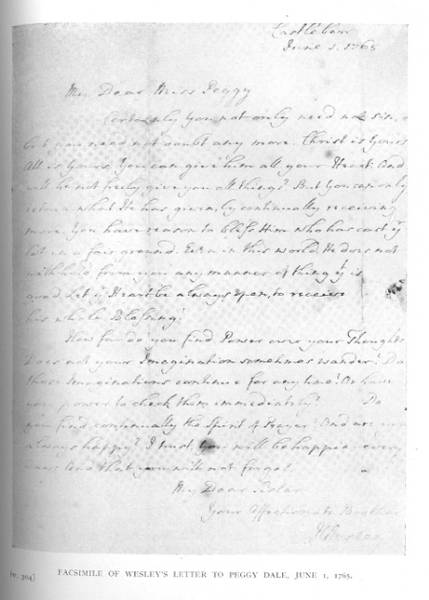 Castlebar
June 1. 1765
My Dear Miss Peggy
Certainly you not only need not sin,
but you need not doubt any more. Christ is yours
All is yours. You can give him all your Heart: And
will he not freely give you all things? But you can only
return what He has given, by continually receiving
more. You have reason to bless Him who has cast yr
lot in a fair ground. Even in this world He does not
withhold from you any manner of thing yt is
good. Let yr Heart be always open, to receive
his whole Blessing!
How far do you find Power over your Thoughts
Does not your Imagination sometimes wander? Do
those Imaginations continue for any time? Or have
you power to check them immediately? Do
you find continually the Spirit of Prayer? And are you
always happy? I trust you will be happier every
And that you will not forget
My Dear Sister
Your Affectionate Brother
J Wesley
304]
FACSIMILE OF WESLEY'S LETTER TO PEGGY DALE, JUNE 1, 1765.